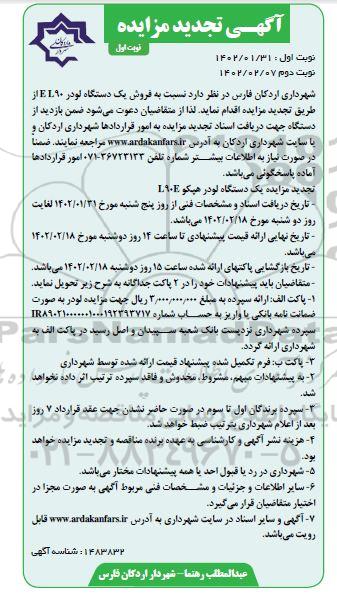 آگهـی تجدید مزایده
نوبت اول
نوبت اول : ۱۴۰۲/۰۱/۳۱
نوبت دوم ۱۴۰۲/۰۲/۰۷
شهرداری اردکان فارس در نظر دارد نسبت به فروش یک دستگاه لودر E L۹۰ از
طریق تجدید مزایده اقدام نماید. لذا از متقاضیان دعوت می‌شود ضمن بازدید از
دستگاه جهت دریافت اسناد تجدید مزایده به امور قراردادها شهرداری اردکان و
یا سایت شهرداری اردکان به آدرس www.ardakanfars.ir مراجعه نمایند. ضمناً
در صورت نیاز به اطلاعات بیشتر شماره تلفن ۳۶۷۲۳۱۳۳-۰۷۱ امور قراردادها
آماده پاسخگوئی می‌باشد.
تجدید مزایده یک دستگاه لودر هپکو L۹۰E
- تاریخ دریافت اسناد و مشخصات فنی از روز پنج شنبه مورخ ۱۴۰۲/۰۱/۳۱ لغایت
روز دو شنبه مورخ ۱۴۰۲/۰۲/۱۸ می‌باشد.
- تاریخ نهایی ارائه قیمت پیشنهادی تا ساعت ۱۴ روز دوشنبه مورخ ۱۴۰۲/۰۲/۱۸
می‌باشد.
- تاریخ بازگشایی پاکتهای ارائه شده ساعت ۱۵ روز دوشنبه ۱۴۰۲/۰۲/۱۸ می‌باشد.
- متقاضیان باید پیشنهادات خود را در ۲ پاکت جداگانه به شرح زیر تحویل نماید.
۱- پاکت الف: ارائه سپرده به مبلغ ۳/۰۰۰/۰۰۰/۰۰۰ ریال جهت مزایده لودر به صورت
ضمانت نامه بانکی یا واریز به حساب شماره
سپرده شهرداری نزدپست بانک شعبه سپیدان و اصل رسید در پاکت الف به
شهرداری ارائه گردد.
۳- پاکت ب: فرم تکمیل شده پیشنهاد قیمت ارائه شده توسط شهرداری
۲- به پیشنهادات مبهم، مشروط، مخدوش و فاقد سپرده ترتیب اثر داده نخواهد
شد.
۳- سپرده برندگان اول تا سوم در صورت حاضر نشدن جهت عقد قرارداد ۷ روز
بعد از اعلام شهرداری بترتیب ضبط خواهد شد.
۴- هزینه نشر آگهی و کارشناسی به عهده برنده مناقصه و تجدید مزایده خواهد
بود.
۵- شهرداری در رد یا قبول احد یا همه پیشنهادات مختار می‌باشد.
۶- سایر اطلاعات و جزئیات و مشخصات فنی مربوط آگهی به صورت مجزا در
اختیار متقاضیان قرار می‌گیرد.
۷- آگهی و سایر اسناد در سایت شهرداری به آدرس www.ardakanfars.ir قابل
رویت می‌باشد.
۱۴۸۳۸۳۲ : شناسه آگهی
عبدالمطلب رهنما - شهردار اردکان فارس
۰۲۱-۸۸۳۴۹۶۷۰-۵